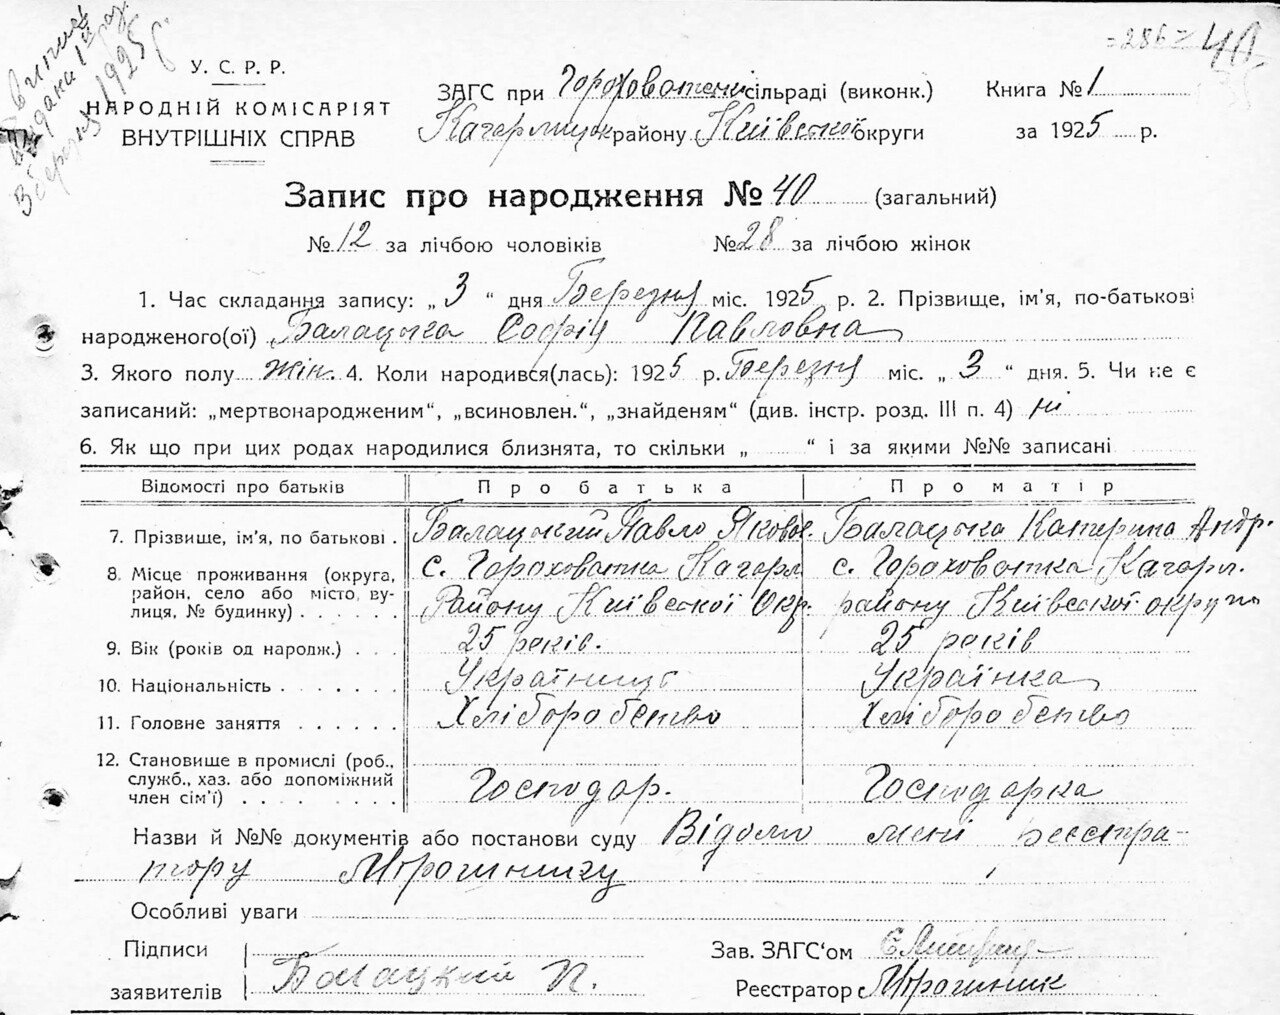 = 286 = 40
Витяг
видано 1 раз
1925 р.
У. С. Р. Р.
НАРОДНІЙ КОМІСАРІЯТ
ВНУТРІШНІХ СПРАВ
ЗАГС при Гороховатській сільраді (виконк.) Книга № 1
Кагарлицьк району Київської округи за 1925 р.
Запис про народження № 40 (загальний)
№ 12 за лічбою чоловіків № 28 за лічбою жінок
1. Час складання запису: „ 3 “ дня Березня міс. 1925 р. 2. Прізвище, ім'я, по-батькові
народженого(ої) Балацька Софія Павловна
3. Якого полу жін. 4. Коли народився(лась): 1925 р. Березня міс. „ 3 “ дня. 5. Чи не є
записаний: „мертвонародженим“, „всиновлен.“, „знайденям“ (див. інстр. розд. III п. 4) ні
6. Як що при цих родах народилися близнята, то скільки „ “ і за якими №№ записані
Відомості про батьків Про батька Про матір
7. Прізвище, ім'я, по батькові . Балацький Павло Яковл. Балацька Катерина Андр.
8. Місце проживання (округа, район, село або місто, вулиця, № будинку) . . . . . . с. Гороховатка Кагарл. Району Київської Окр. с. Гороховатка Кагарл. району Київської округи
9. Вік (років од народж.) . . . 25 років. 25 років
10. Національність . . . . . . . Українець Українка
11. Головне заняття . . . . . . Хліборобство Хліборобство
12. Становище в промислі (роб., служб., хаз. або допоміжний член сім'ї) . . . . . . . . Господар. Господарка
Назви й №№ документів або постанови суду Відомо мені Реєстра-
тору Мірошнику
Особливі уваги
Підписи Зав. ЗАГС‘ом
заявителів Балацкий П. Реєстратор Мірошник